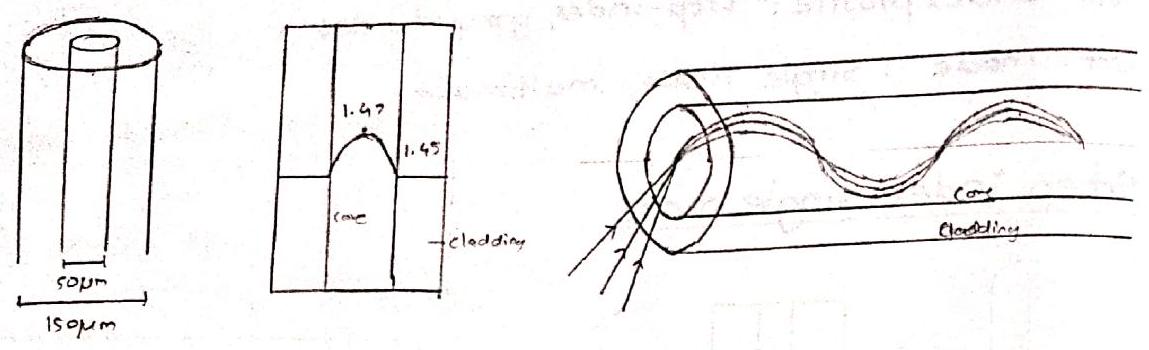 50μm
150μm
1.47
1.45
core
cladding
core
cladding